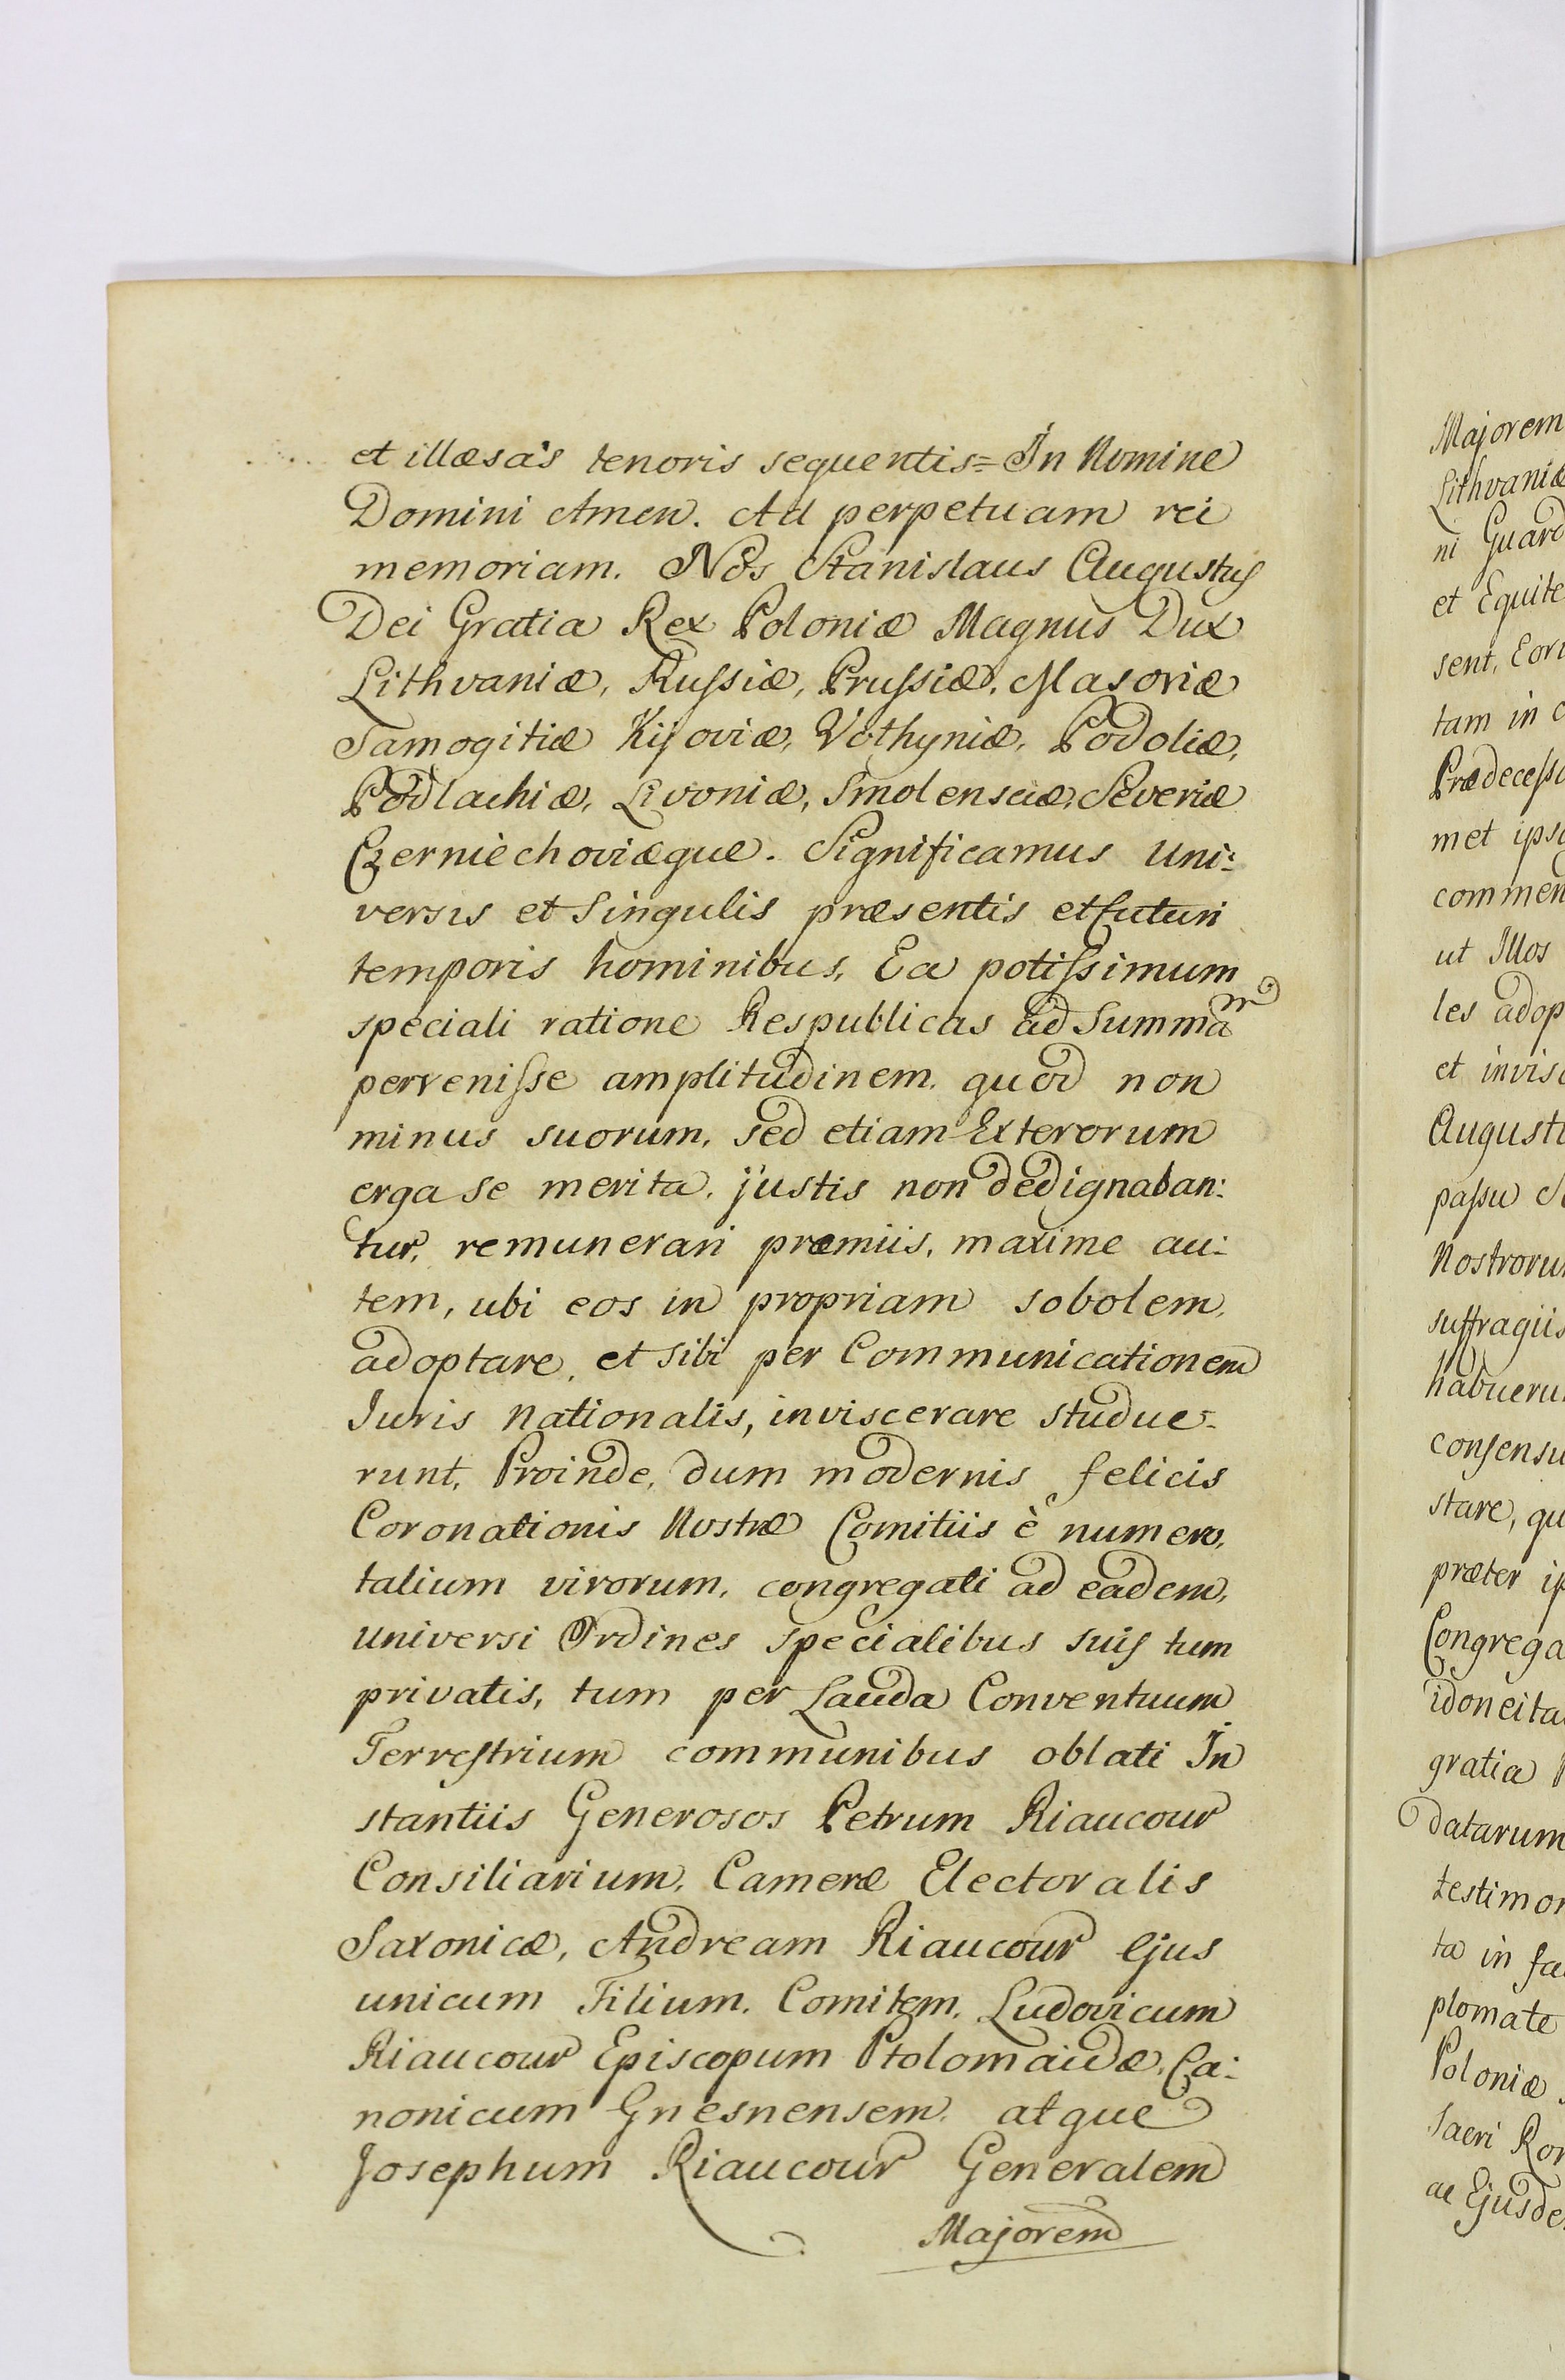 et illæsas tenoris sequentis = In Nomine
Domini Amen. Ad perpetuam rei
memoriam. Nos Stanislaus Augustus
Dei Gratia Rex Poloniæ Magnus Dux
Lithvaniæ, Russiæ, Prussiæ, Masoviæ
Samogitiæ Kijoviæ, Vothyniæ, Podoliæ,
Podlachiæ, Livoniæ, Smolensciæ, Severiæ
Czerniechoviæque. Significamus Uni:
versis et Singulis præsentis et futuri
temporis hominibus, Ea potissimum
speciali ratione Respublicas ad Summam
pervenisse amplitudinem, quod non
minus suorum, sed etiam Exterorum
erga se merita, justis non dedignaban:
tur, remunerari præmiis, maxime au:
tem, ubi eos in propriam sobolem,
adoptare, et sibi per Communicationem
Juris Nationalis, inviscerare studue-
runt, Proinde, dum modernis felicis
Coronationis Nostræ Comitiis è numero,
talium virorum, congregati ad eadem,
Universi Ordines specialibus suis tum
privatis, tum per Lauda Conventuum
Terrestrium communibus oblati In
stantiis Generosos Petrum Riaucour
Consiliarium, Cameræ Electoralis
Saxonicæ, Andream Riaucour ejus
unicum Filium, Comitem, Ludovicum
Riaucour Episcopum Ptolomaidæ, Ca:
nonicum Gnesnensem, atque
Josephum Riaucour Generalem
Majorem
Majorem
Lithvaniæ
ni Guard
et Equite
sent, Eoru
tam in c
Prædecesso
met ipso
commen
ut Illos
les adop
et invisc
Augusti
passu S
Nostroru
suffragiis
habueru
consensu
stare, qu
præter ip
Congrega
idoneita
gratia
datarum
testimon
ta in fa
plomate
Poloniæ
Sacri Rom
ac Ejusde